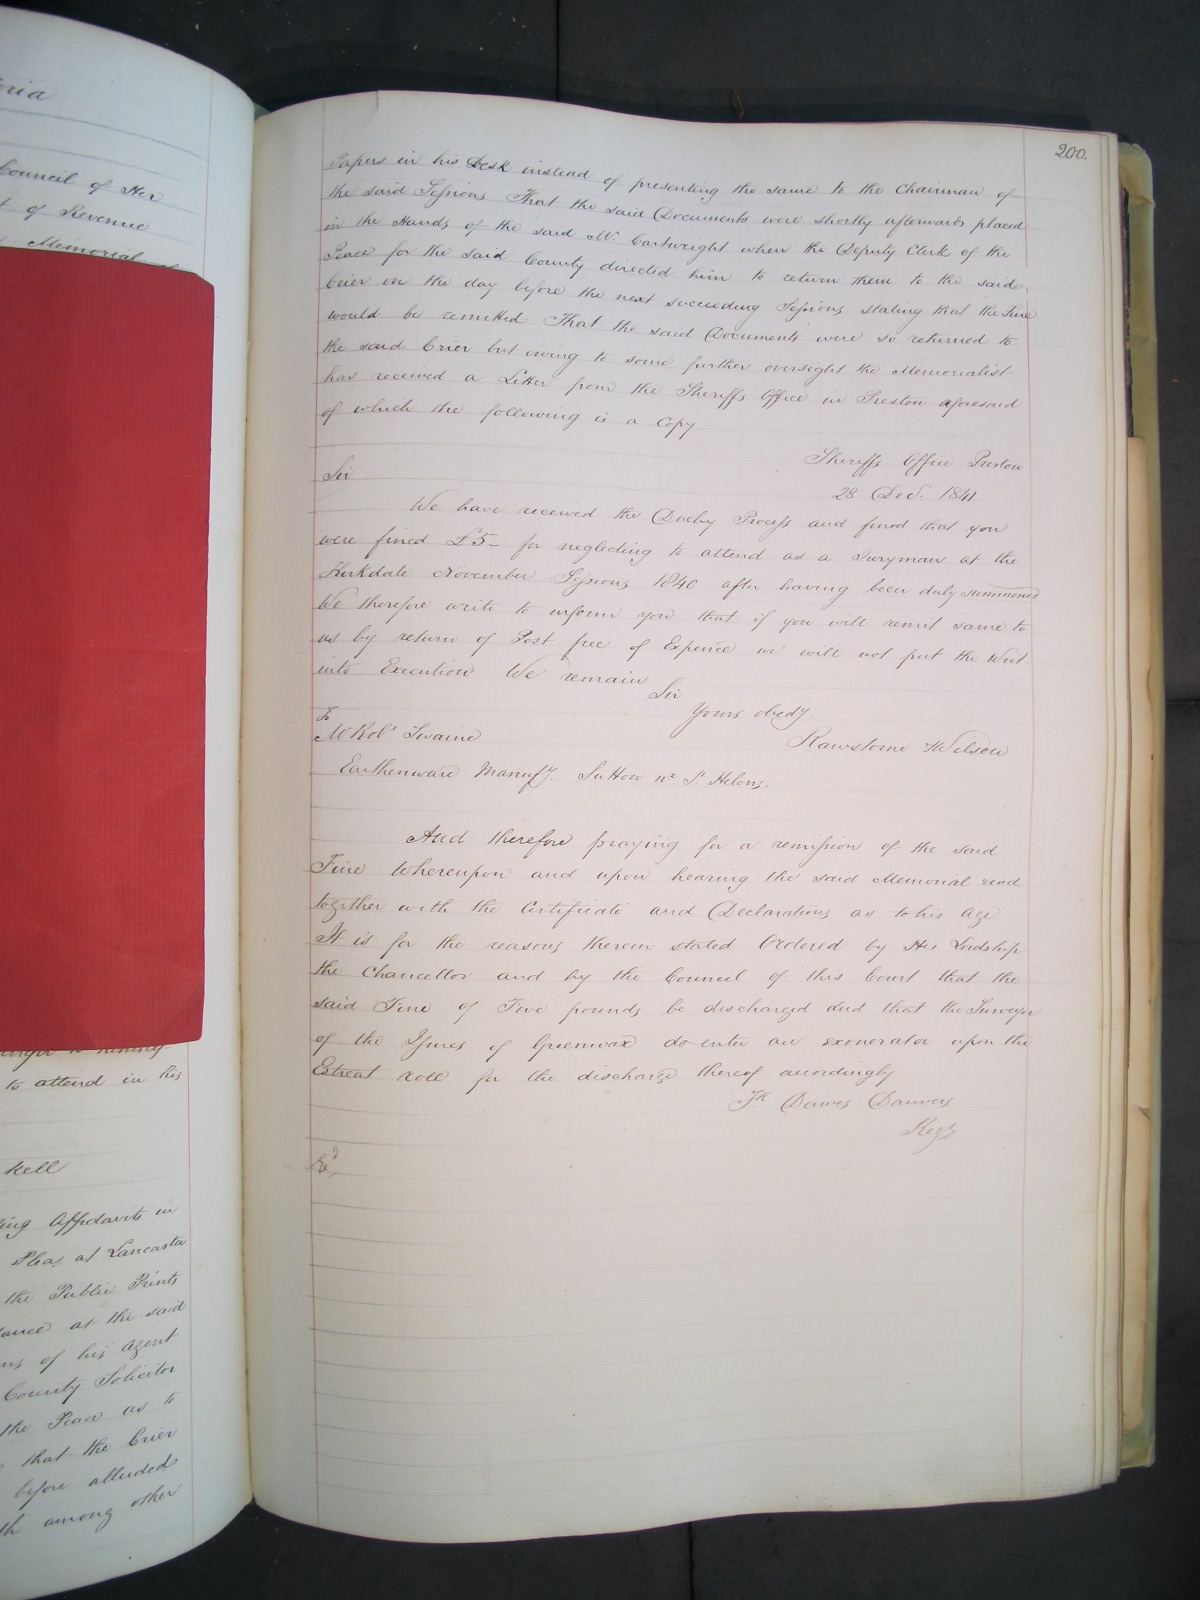 oria
Council of Her
t of Revenue
Memorial
to attend in his
kell
ing Affidavits in
Pleas at Lancaster
the Public Prints
tance at the said
ns of his Agent
County Solicitor
the Peace as to
that the Crier
before alluded
th among other
200.
Papers in his Desk instead of presenting the same to the Chairman of
the said Sessions That the said Documents were shortly afterwards placed
in the Hands of the said Mr. Cartwright when the Deputy Clerk of the
Peace for the said County directed him to return them to the said
Crier on the day before the next succeeding Sessions stating that the Fine
would be remitted That the said Documents were so returned to
the said Crier but owing to some further oversight the Memorialist
has received a Letter from the Sheriffs Office in Preston aforesaid
of which the following is a Copy.
Sheriffs Office Preston
28 Decr. 1841
Sir
We have received the Duchy Process and find that you
were fined £5 – for neglecting to attend as a Juryman at the
Kirkdale November Sessions 1840 after having been duly summoned
We therefore write to inform you that if you will remit same to
us by return of Post free of Expence we will not put the Writ
into Execution We remain
Sir
Yours obedy.
Rawstorne & Wilson
To
Mr Robt Swaine
Earthenware Manufy. Sutton nr St Helens.
And therefore praying for a remission of the said
Fine Whereupon and upon hearing the said Memorial read
together with the Certificate and Declarations as to his age
It is for the reasons therein stated Ordered by His Lordship
the Chancellor and by the Council of this Court that the
said Fine of Five pounds be discharged and that the Surveyor
of the Issues of Greenwax do enter an exonerator upon the
Estreat roll for the discharge thereof accordingly
Fk Dawes Danvers
Regr
Exd